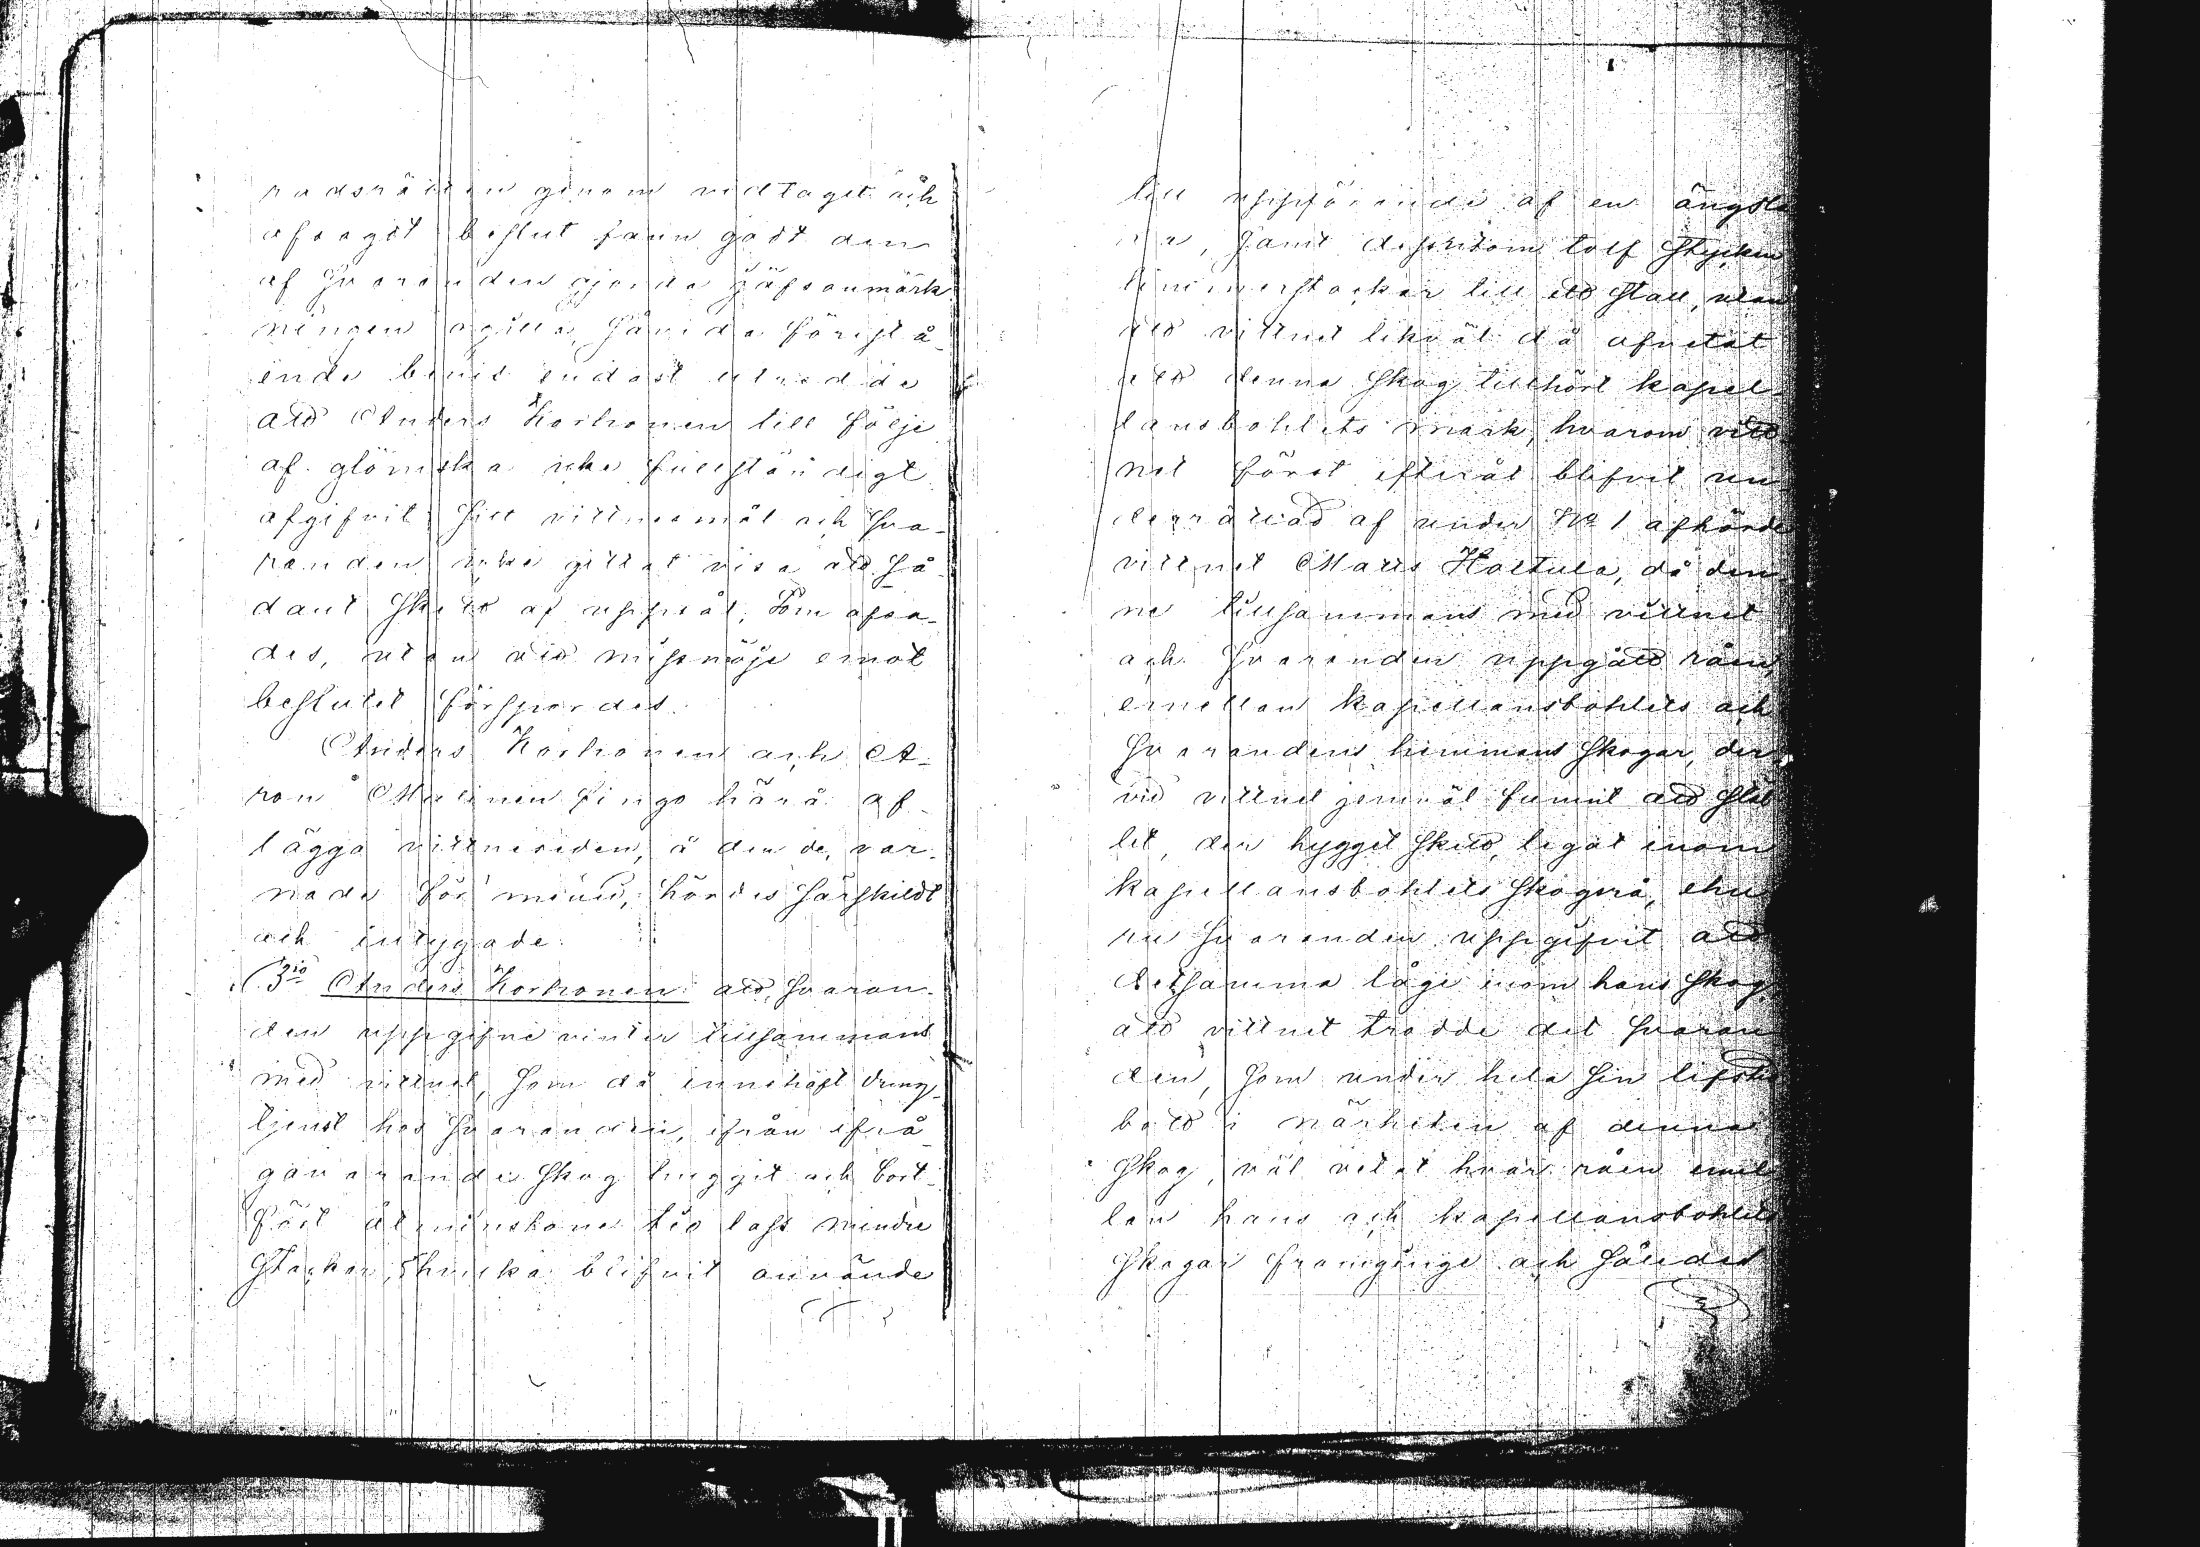 radsrätten genom vidtaget och
afsagdt beslut fann godt den
af Svaranden gjorda jäfsanmärk
ningen ogilla, såvida förestå-
ende bevis endast utredde
att Anders Korhonen till följe
af glömska icke fullständigt
afgifvit sitt vittnesmål och Sva-
randen icke gittat visa att så-
dant skett af uppsåt, Som afsa-
des, utan att missnöje emot
beslutet förspordes.
Anders Korhonen och A-
ron Mulinen finge härå af-
lägga vittneseden, å den de, var-
nade för mened, hördes särskildt
och intygade:
3tio Anders Korhonen: att Svaran-
den uppgifne vinter tillsammans
med vittnet, som då innehaft dräng-
tjenst hos Svaranden, ifrån ifrå-
gavarande skog huggit och bort-
fört åtminstone tio lass mindre
Stockar, hvilka blifvit använde
till uppförande af en ängsla
da, samt dessutom tolf stycken
timmerstockar till ett stall, utan
att vittnet likväl då afvetat
att denna skog tillhört kapel-
lansbohlets mark, hvarom vitt-
net först efteråt blifvit un-
derrättad af under No 1 afhörde
vittnet Matts Haltula, då den-
ne tillsammans med vittnet
och Svaranden uppgått råen
emellan kapellansbohlets och
Svarandens hemmans skogar, der
vid vittnet jemväl funnit att stäl
let, der hygget skett, legat inom
kapellansbohlets skogsrå, ehu
ru Svaranden uppgifvit att
detsamma låge inom hans skog
att vittnet trodde det Svaran
den, som under hela sin lifstid
bott i närheten af denna
skog, väl vetat hvar råen emel
lan hans och kapellansbohlets
skogar framginge och således